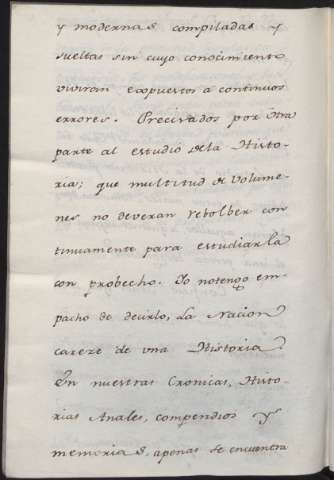 y modernas compiladas y
sueltas sin cuyo conocimiento
viviran expuestos a continuos
errores. Precisados por otra
parte al estudio de la Histo-
ria; que multitud de Volume-
nes no deveran rebolber con
tinuamente para estudiarla
con probecho. Io notengo em-
pacho de decirlo, La Nacion
careze de vna Historia.
En nuestras Cronicas, Histo-
rias Anales, compendios y
memorias, apenas se encuentra